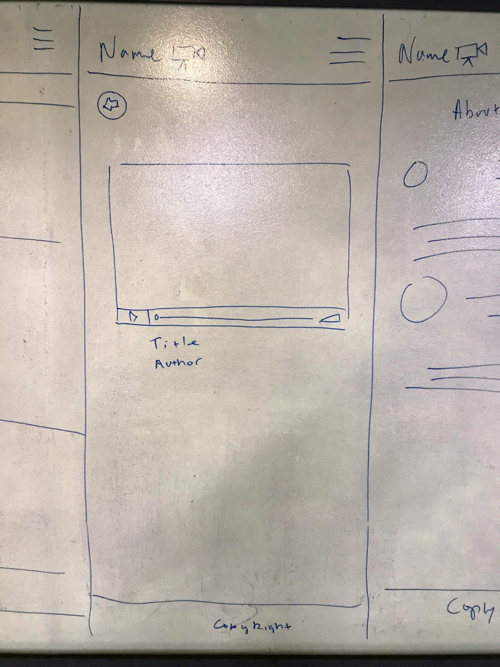 Name
Title
Author
Copyright
Name
About
Copy